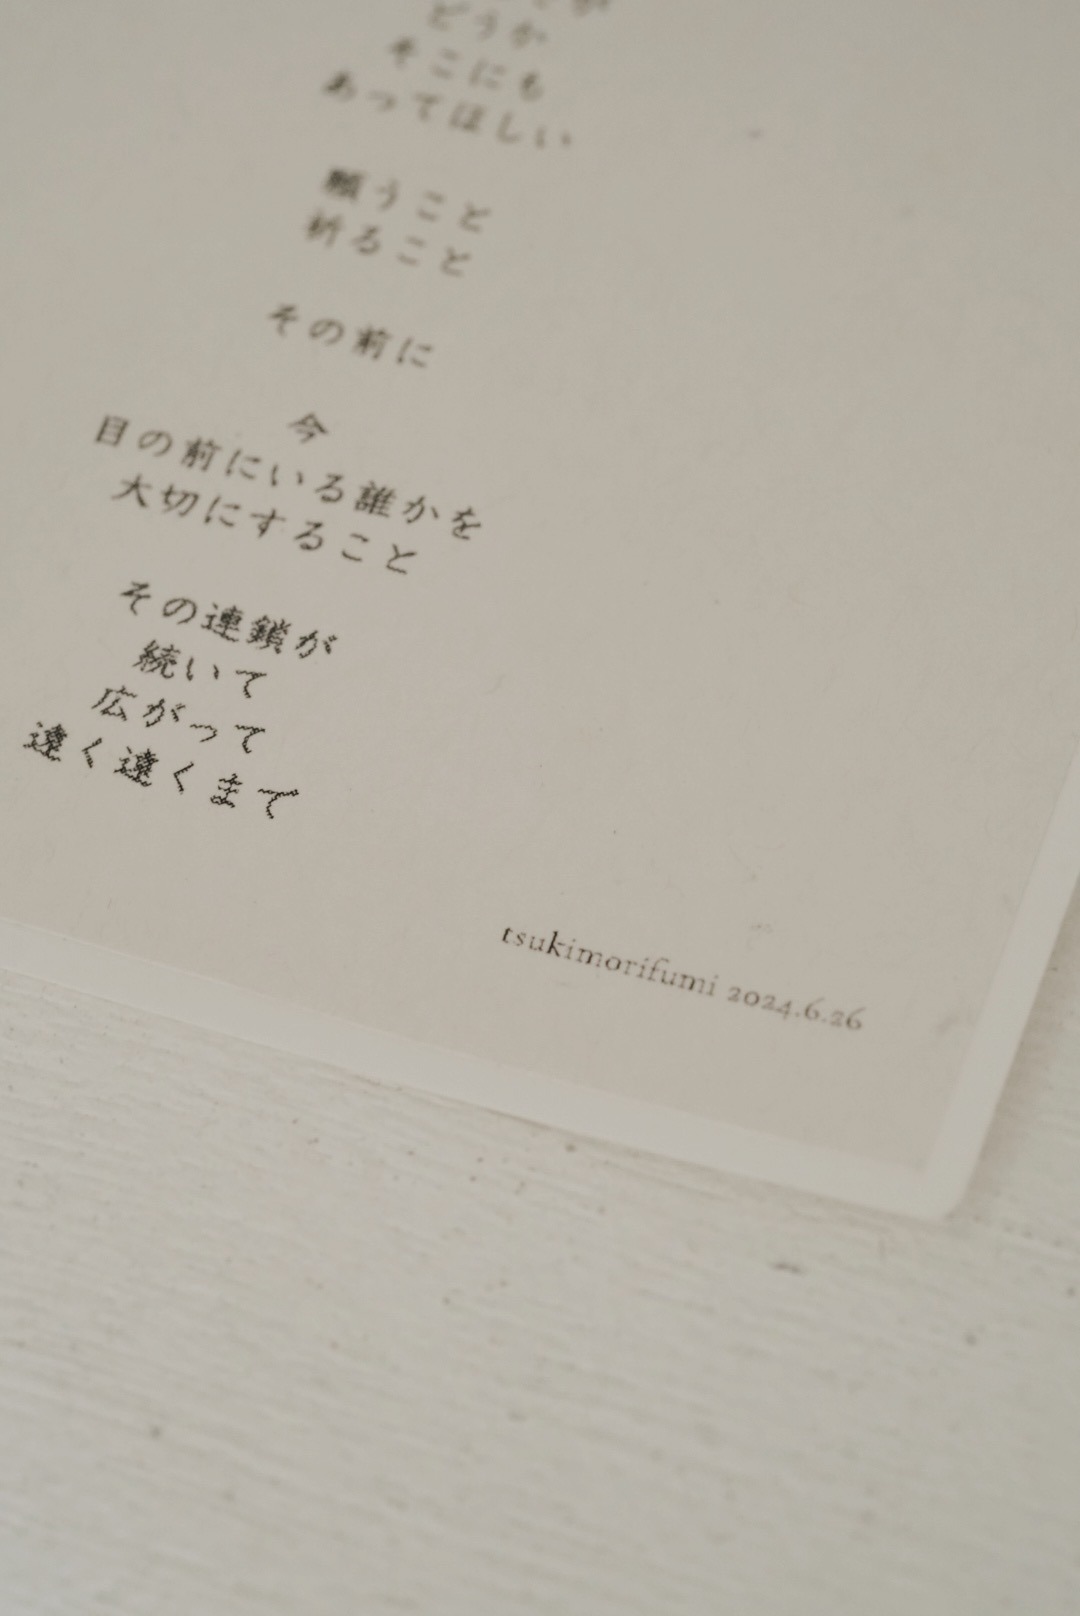 どうか
そこにも
あってほしい
願うこと
祈ること
その前に
今
目の前にいる誰かを
大切にすること
その連鎖が
続いて
広がって
遠く遠くまで
tsukimorifumi 2024.6.26